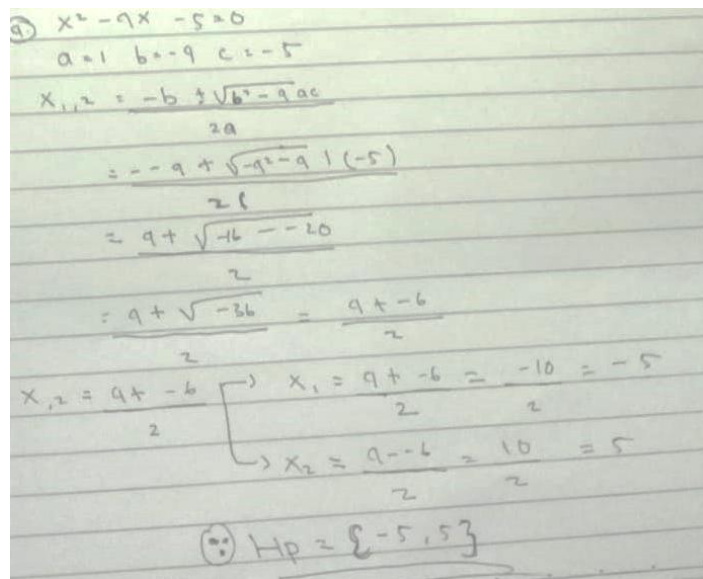 x² - 4x - 5 = 0
a = 1 b = -4 c = -5
x₁,₂ = (-b ± √(b² - 4ac)) / 2a
= (--4 + √(-4² - 4) 1 (-5)) / 2 1
= (4 + √(-16 - -20)) / 2
= (4 + √(-36)) / 2 = (4 + -6) / 2
x,₂ = (4 + -6) / 2 → x₁ = (4 + -6) / 2 = -10 / 2 = -5
→ x₂ = (4 - -6) / 2 = 10 / 2 = 5
∴ Hp = {-5, 5}